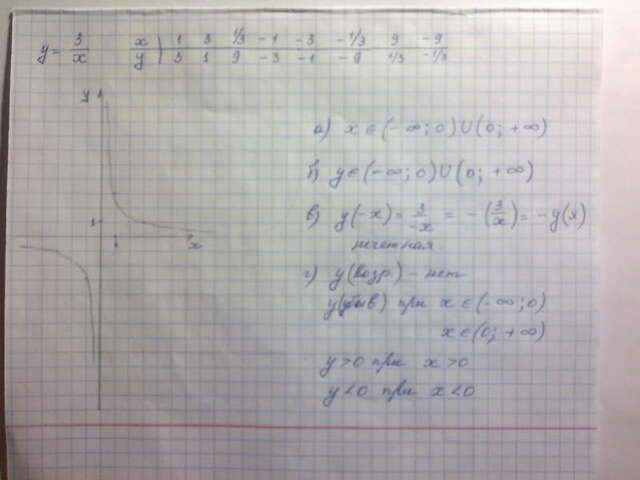 y = 3/x
x | 1 3 1/3 -1 -3 -1/3 9 -9
y | 3 1 9 -3 -1 -9 1/3 -1/3
y
а) x ∈ (-∞; 0) ∪ (0; +∞)
б) y ∈ (-∞; 0) ∪ (0; +∞)
в) y(-x) = 3/-x = -(3/x) = -y(x)
1
x
нечетная
г) y(возр) - нет
y(убыв) при x ∈ (-∞; 0)
x ∈ (0; +∞)
y > 0 при x > 0
y < 0 при x < 0